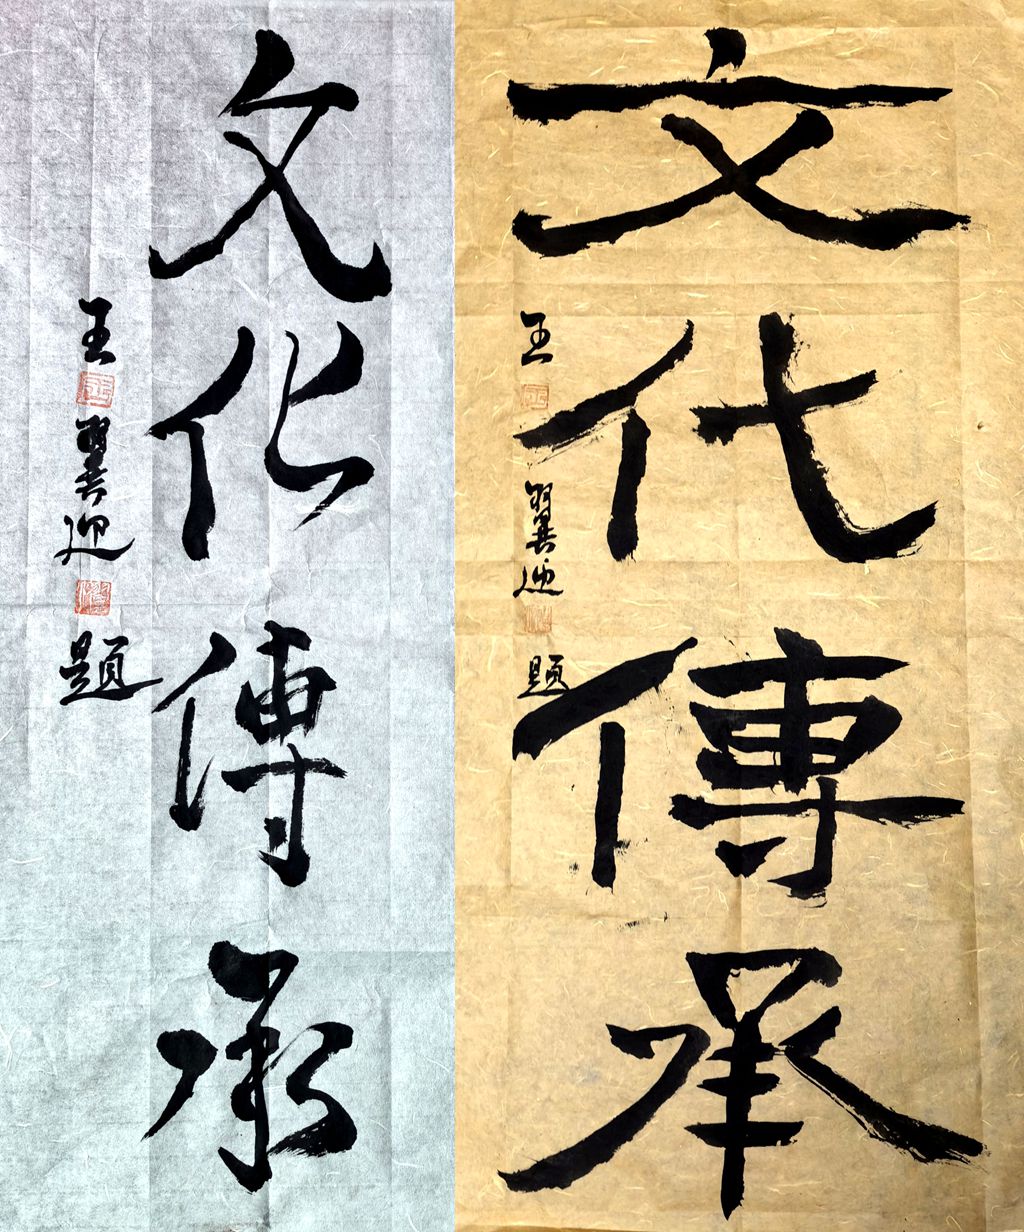 文化傳承
王翼迎題
文化傳承
王翼迎題